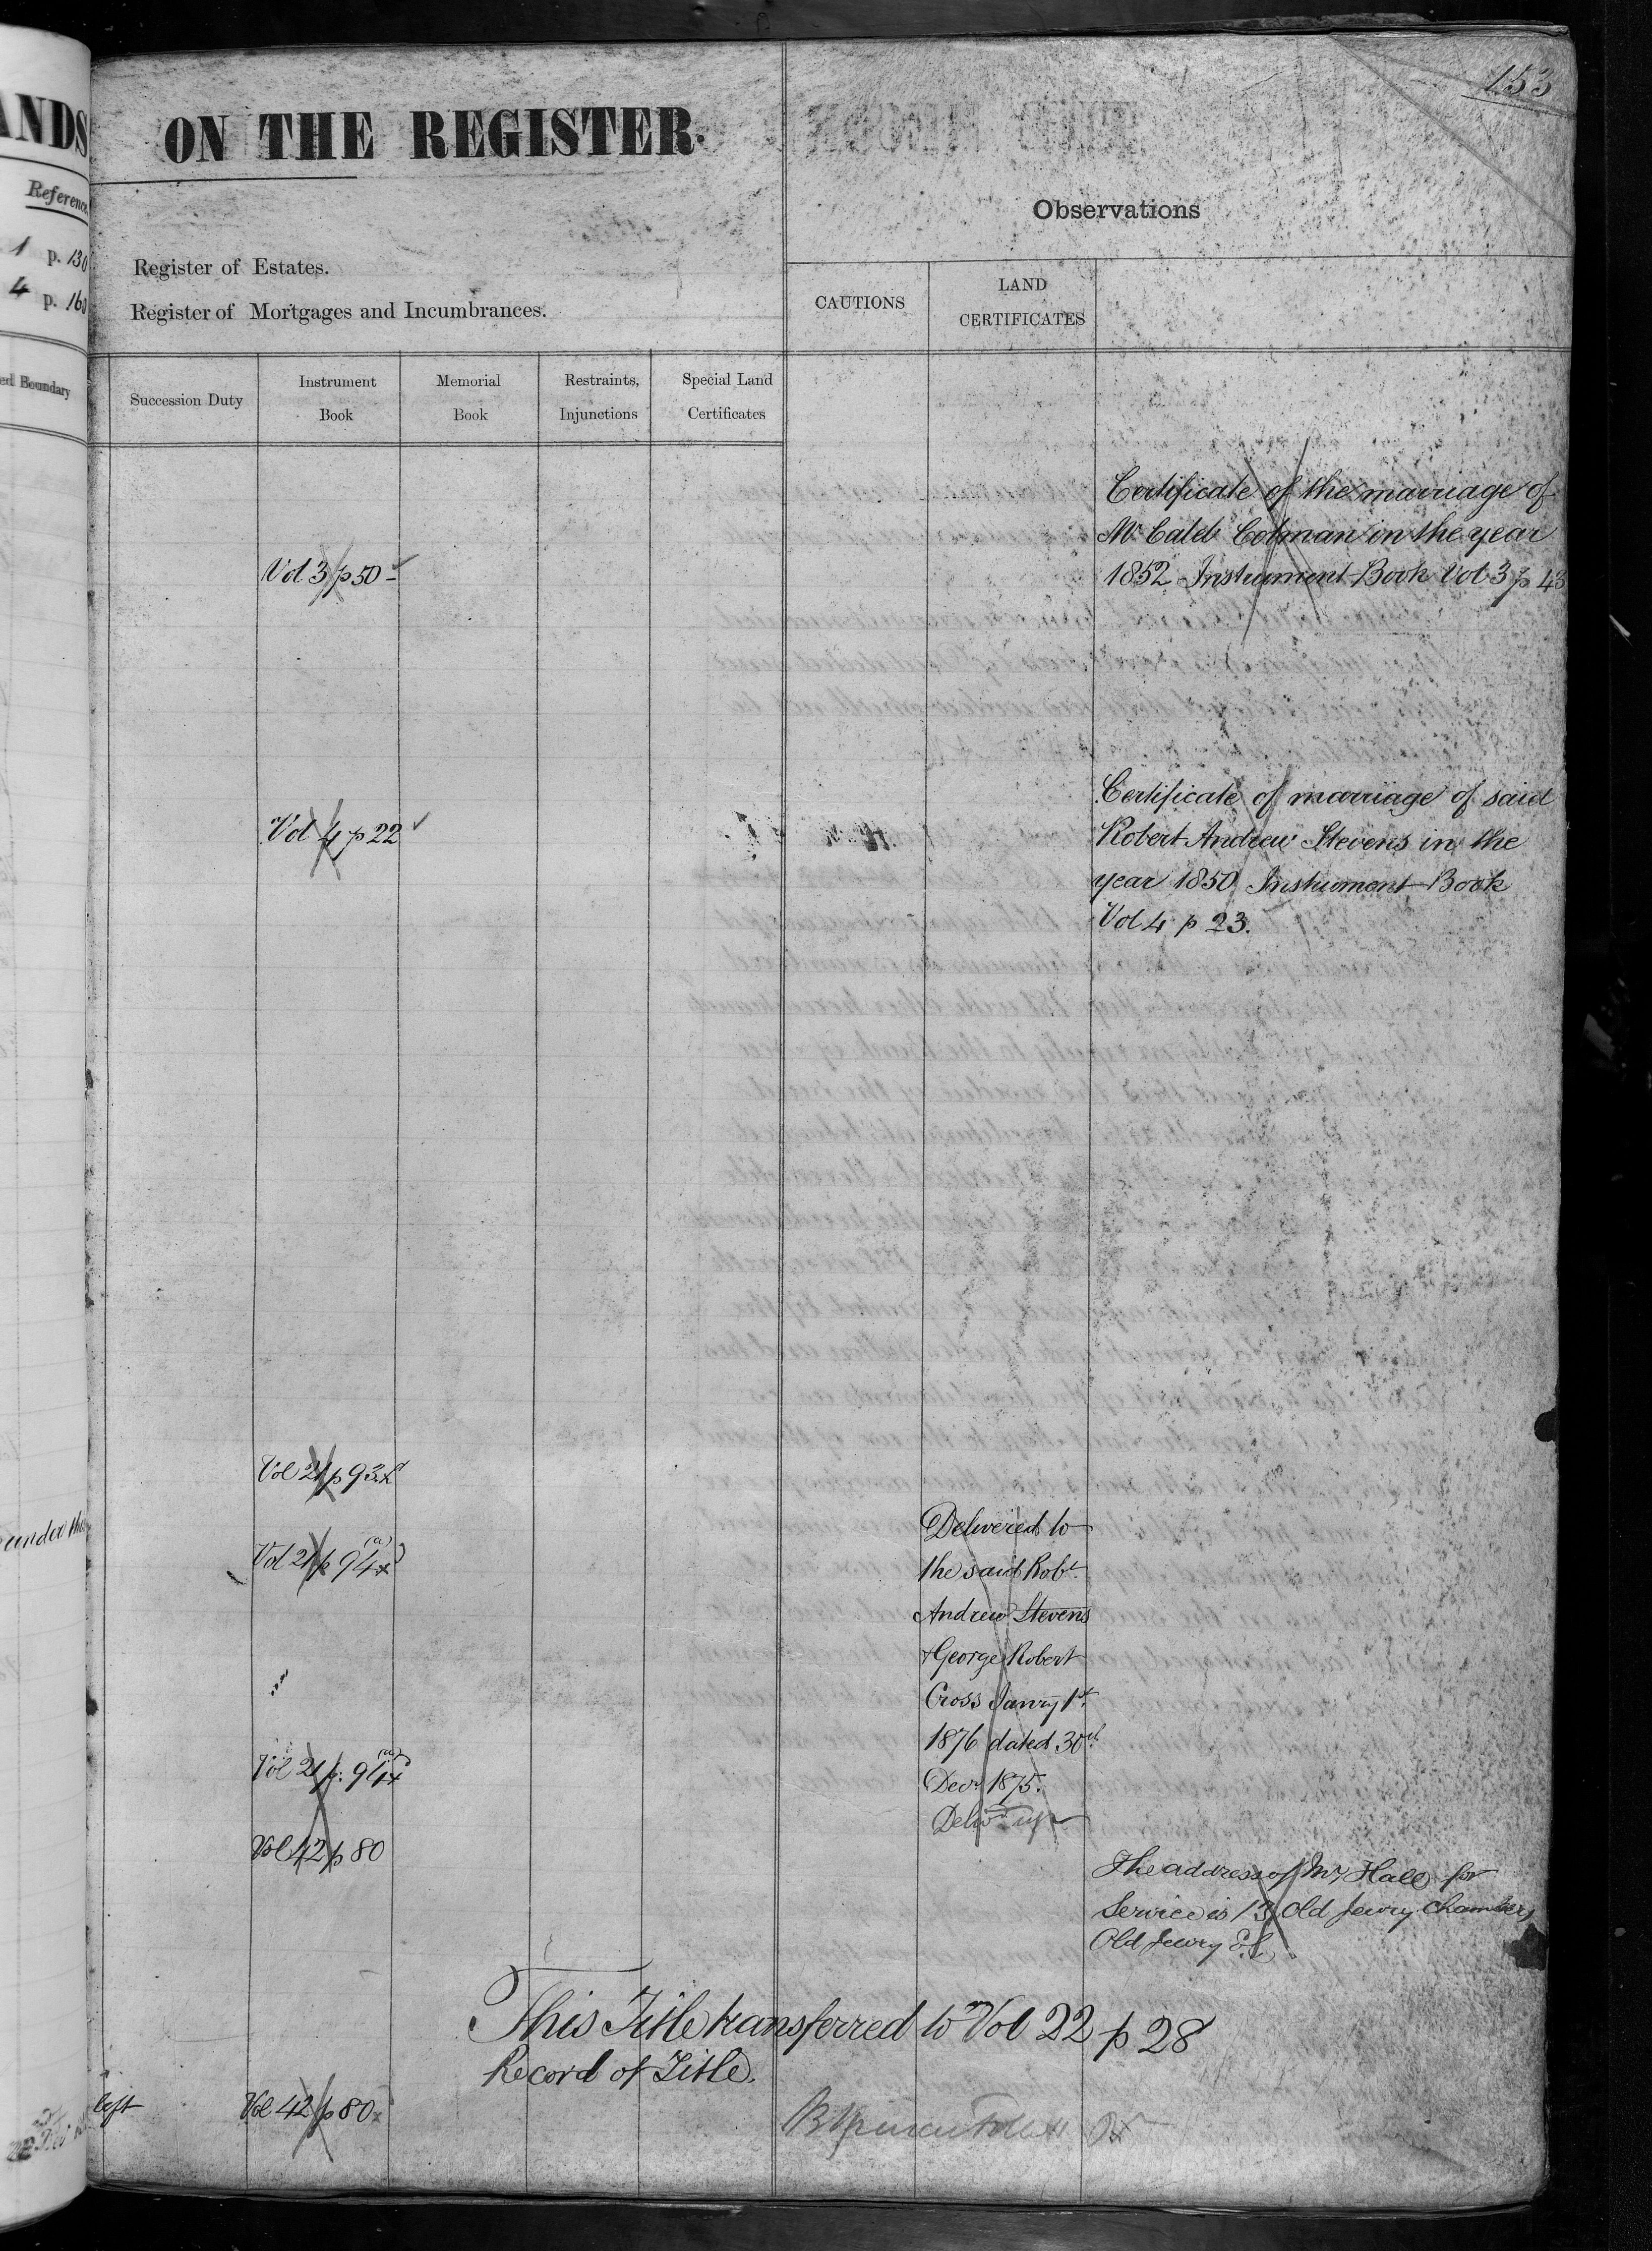 153
ANDS
ON THE REGISTER.
Reference
1 p. 130
4 p. 160
Observations
Register of Estates.
Register of Mortgages and Incumbrances.
CAUTIONS
LAND
CERTIFICATES
ed Boundary
Succession Duty
Instrument
Book
Memorial
Book
Restraints,
Injunctions
Special Land
Certificates
Certificate of the marriage of
Mr Caleb Colman in the year
1852 Instrument Book Vol 3 p 43
Vol 3 p 50
Certificate of marriage of said
Robert Andrew Stevens in the
year 1850 Instrument Book
Vol 4 p 23.
Vol 4 p 22
Vol 21 p 93
under the
Vol 21 p 94 (a)
Delivered to
the said Robt.
Andrew Stevens
+ George Robert
Cross Janry 1st
1876 dated 30th
Decr 1875.
Delivd up
Vol 21 p. 94 (a)
Vol 42 p 80
The address of Mr Hall for
Service is 13 Old Jewry Chambers
Old Jewry E.C.
This Title transferred to Vol 22 p 28
Record of Title.
left
Vol 42 p 80